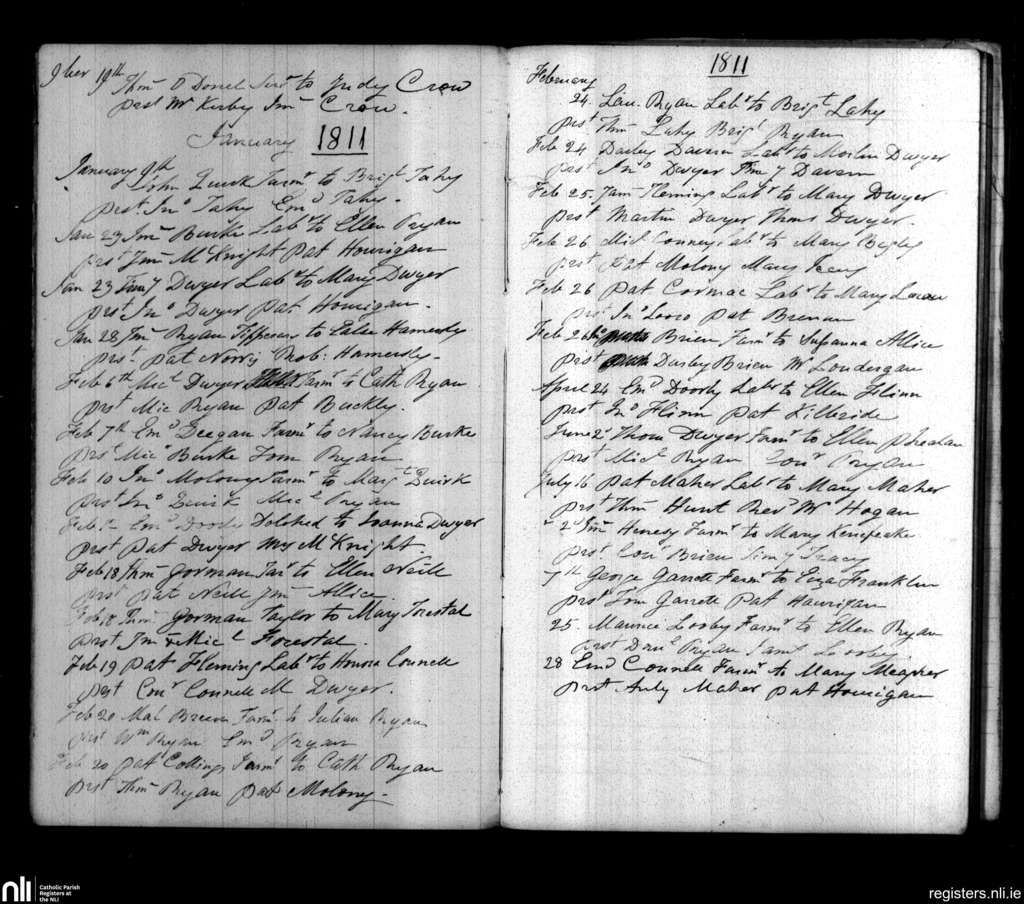 9ber 19th
Thms O Donel Serv.t to Judy Crow
prst Mr Kirby Jms Crow.
January 1811
January 9th
John Quirk Farmr to Brigt Fahy
prst. Jno Fahy Emd Fahy.
Jan 23 Jms Burke Labr to Ellen Ryan
prst Jms McKnight Pat Hourigan
Jan 23 Timy Dwyer Labr to Mary Dwyer
prst Jno Dwyer Pat Hourigan.
Jan 28 Jms Ryan to Ellen Hamersly
prst Pat Norris Rob: Hamersly.
Feb 6th Micl Dwyer Farmr to Cath Ryan
prst Mic Ryan Pat Buckly.
Feb 7th Emd Deegan Farmr to Nancy Burke
prst Mic Burke Tom Ryan
Feb 10 Jno Molony Farmr to Margt Quirk
prst Jno Quirk Micl Ryan
Feb Emd to Joanna Dwyer
prst Pat Dwyer Mrs McKnight
Feb 18 Thms Gorman Tar to Ellen Neill
prst Pat Neill Jms Allice
Feb 18 Gorman Taylor to Mary Forestal
prst Jms & Micl Forestal
Feb 19 Pat Fleming Labr to Honora Connell
prst Conr Connell M Dwyer.
Feb 20 Mal Breen Farmr to Julian Ryan
prst Wm Ryan Emd Ryan
Feb 20 Pat Collings Farmr to Cath Ryan
prst Thms Ryan Pat Molony.
1811
February
24. Lau. Ryan Labr to Brigt Lahy
prst Thms Lahy Brigt Ryan
Feb 24 Darby Davern Labr to Dwyer
prst. Jno Dwyer Timy Davern
Feb 25. Jams Fleming Labr to Mary Dwyer
prst Martin Dwyer Thoms Dwyer.
Feb 26 Micl Conney Labr to Mary Begly
prst Pat Molony Mary
Feb 26 Pat Cormac Labr to Mary
prst Jno Pat Brenan
Feb 26 Brien Farmr to Susanna Allice
prst Darby Brien Mr Londergan
April 24 Emd Doorly Labr to Ellen Flinn
prst Jno Flinn Pat Kilbride
June 2d Thoms Dwyer Farmr to Ellen Phealan
prst Micl Ryan Conr Ryan
July 16 Pat Maher Labr to Mary Maher
prst Thms Hunt Revd Mr Hogan
2d Jms Henesy Farmr to Mary
prst Conr Brien Timy Tracy
7th George Garrett Farmr to Eliza Franklin
prst Tom Garrett Pat Hourigan
25. Maurice Looby Farmr to Ellen Ryan
prst Danl Ryan Jams Looby.
28 Emd Connell Farmr to Mary Meagher
prst Andy Maher Pat Hourigan
nli Catholic Parish
Registers at
the NLI
registers.nli.ie